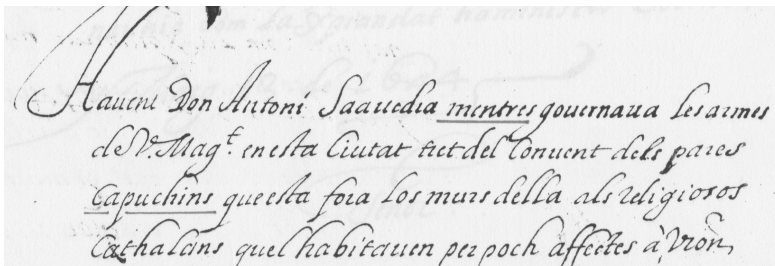 Havent Don Antoni Saavedra mentres governava les armes
de SV. Mag.t en esta Ciutat tret del Convent dels pares
Capuchins que esta fora los murs della als religiosos
Cathalans quel habitaven per poch affectes à